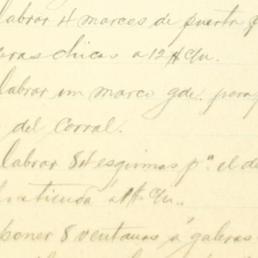 labrar 4 marcos de puerta p
bras chicas a 12 $ c/u.
labrar un marco gde. para
del corral.
labrar 8 esquinas pª. el de
trastienda a c/u.
poner 8 ventanas á galeras